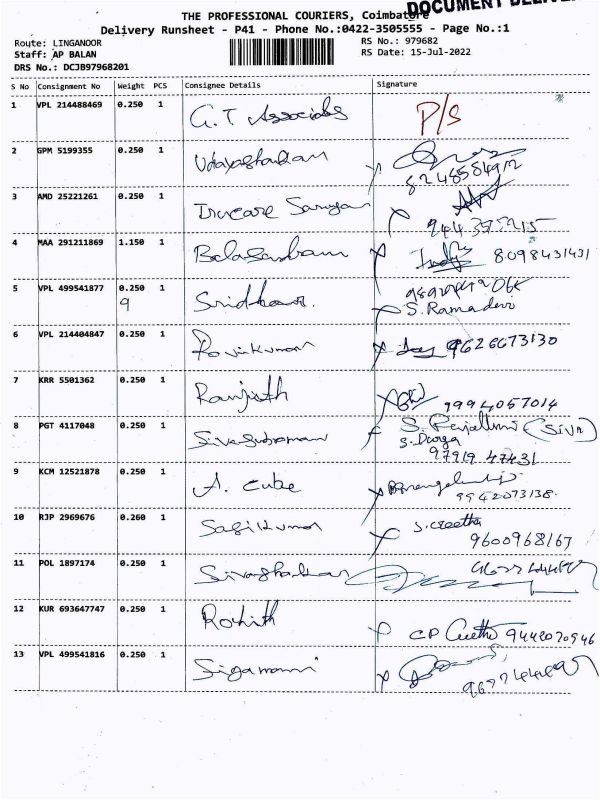 DOCUMENT
THE PROFESSIONAL COURIERS, Coimbatore
Delivery Runsheet - P41 - Phone No.:0422-3505555 - Page No.:1
Route: LINGANOOR
RS No.: 979682
Staff: AP BALAN
RS Date: 15-Jul-2022
DRS No.: DCJB97968201
S No Consignment No Weight PCS Consignee Details Signature
1 VPL 214488469 0.250 1 G.T Associats P/S
2 GPM 5199355 0.250 1
3 AMD 25221261 0.250 1
4 MAA 291211869 1.150 1 8098431431
5 VPL 499541877 0.250 1 Sridhar.
9 S. Ramadevi
6 VPL 214404847 0.250 1 Ravikumar 9626673130
7 KRR 5501362 0.250 1 Ranjith 9994057014
8 PGT 4117048 0.250 1 Sivasubraman (Siva)
S. Durga
97919 47431
9 KCM 12521878 0.250 1 A. Cube
9942073138.
10 RJP 2969676 0.260 1 Sasikumar S. Geetha
9600968167
11 POL 1897174 0.250 1
12 KUR 693647747 0.250 1 Rohith CP Geetha 9442070946
13 VPL 499541816 0.250 1 Sigamani